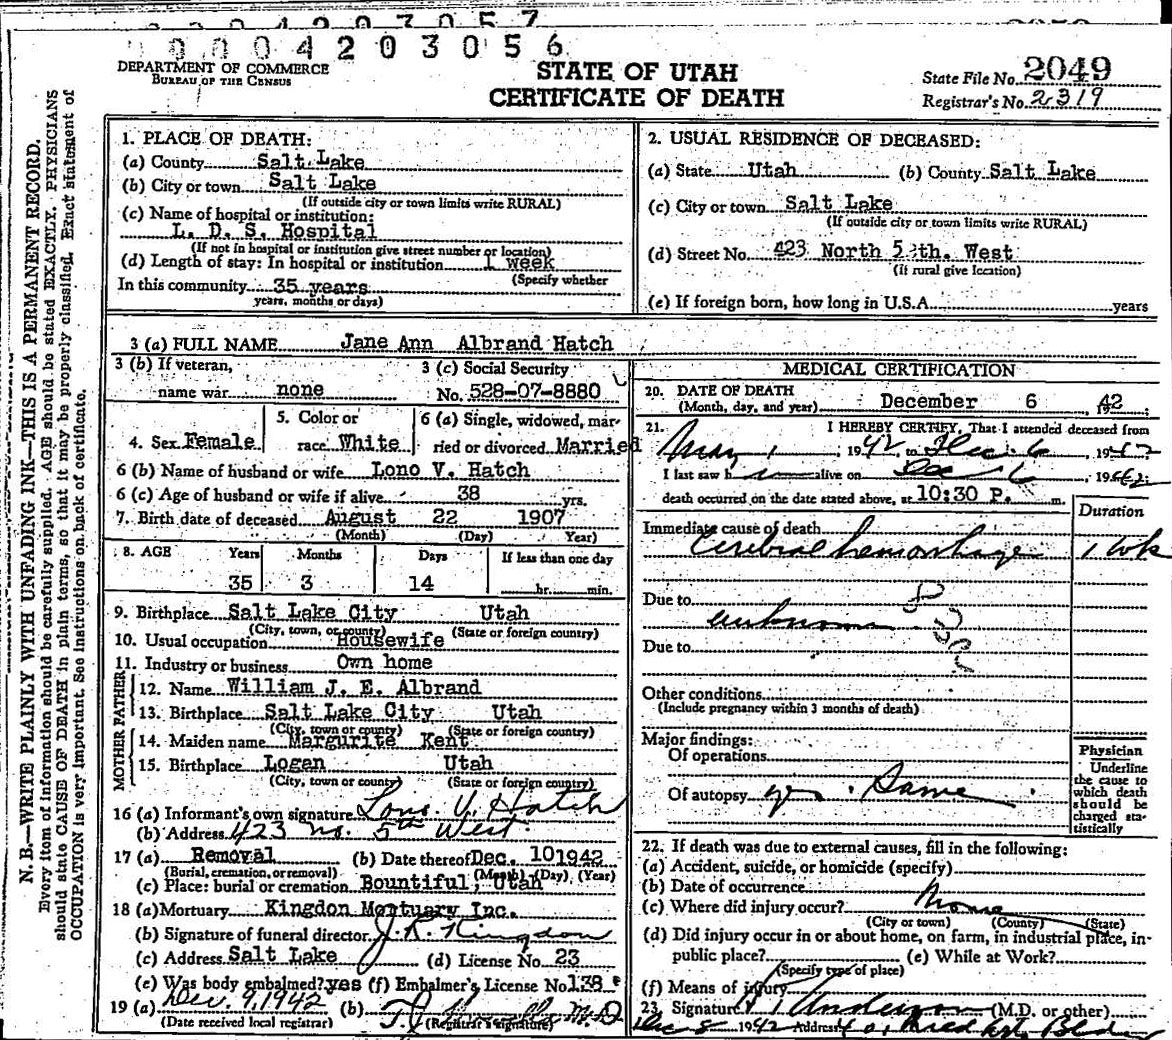 0 0 0 4 2 0 3 0 5 7
0 0 0 4 2 0 3 0 5 6
DEPARTMENT OF COMMERCE
BUREAU OF THE CENSUS
STATE OF UTAH
CERTIFICATE OF DEATH
State File No. 2049
Registrar's No. 2319
N. B.—WRITE PLAINLY WITH UNFADING INK—THIS IS A PERMANENT RECORD.
Every item of information should be carefully supplied. AGE should be stated EXACTLY. PHYSICIANS
should state CAUSE OF DEATH in plain terms, so that it may be properly classified. Exact statement of
OCCUPATION is very important. See instructions on back of certificate.
1. PLACE OF DEATH:
(a) County Salt Lake
(b) City or town Salt Lake
(If outside city or town limits write RURAL)
(c) Name of hospital or institution:
L. D. S. Hospital
(If not in hospital or institution give street number or location)
(d) Length of stay: In hospital or institution 1 week
(Specify whether
In this community 35 years
years, months or days)
2. USUAL RESIDENCE OF DECEASED:
(a) State Utah (b) County Salt Lake
(c) City or town Salt Lake
(If outside city or town limits write RURAL)
(d) Street No. 423 North 5th. West
(If rural give location)
(e) If foreign born, how long in U.S.A. years
3 (a) FULL NAME Jane Ann Albrand Hatch
3 (b) If veteran,
name war none
3 (c) Social Security
No. 528-07-8880
4. Sex Female
5. Color or
race White
6 (a) Single, widowed, mar-
ried or divorced Married
6 (b) Name of husband or wife Lono V. Hatch
6 (c) Age of husband or wife if alive 38 yrs.
7. Birth date of deceased August 22 1907
(Month) (Day) Year)
8. AGE Years Months Days If less than one day
35 3 14 hr. min.
9. Birthplace Salt Lake City Utah
(City, town, or county) (State or foreign country)
10. Usual occupation Housewife
11. Industry or business Own home
FATHER
12. Name William J. E. Albrand
13. Birthplace Salt Lake City Utah
(City, town or county) (State or foreign country)
MOTHER
14. Maiden name Margurite Kent
15. Birthplace Logan Utah
(City, town or county) (State or foreign country)
16 (a) Informant's own signature Lono V. Hatch
(b) Address 423 No. 5th West
17 (a) Removal (b) Date thereof Dec. 10 1942
(Burial, cremation, or removal) (Month) (Day) (Year)
(c) Place: burial or cremation Bountiful, Utah
18 (a) Mortuary Kingdon Mortuary Inc.
(b) Signature of funeral director J. R. Kingdon
(c) Address Salt Lake (d) License No. 23
(e) Was body embalmed? yes (f) Embalmer's License No. 138
19 (a) Dec. 9, 1942 (b) M.D.
(Date received local registrar) (Registrar's signature)
MEDICAL CERTIFICATION
20. DATE OF DEATH
(Month, day, and year) December 6 1942
21. I HEREBY CERTIFY, That I attended deceased from
May 1942 to Dec. 6, 1942
I last saw h alive on Dec 6 1942
death occurred on the date stated above, at 10:30 P. m.
Duration
Immediate cause of death
Cerebral hemorrhage 1 wk
Due to
unknown
Due to
Other conditions
(Include pregnancy within 3 months of death)
Major findings:
Of operations
Of autopsy yes. Same
Physician
Underline
the cause to
which death
should be
charged sta-
tistically
22. If death was due to external causes, fill in the following:
(a) Accident, suicide, or homicide (specify)
(b) Date of occurrence
(c) Where did injury occur? None
(City or town) (County) (State)
(d) Did injury occur in or about home, on farm, in industrial place, in-
public place? (e) While at Work?
(Specify type of place)
(f) Means of injury
23. Signature Anderson (M.D. or other)
Dec 8 1942 Address Med Art Bldg